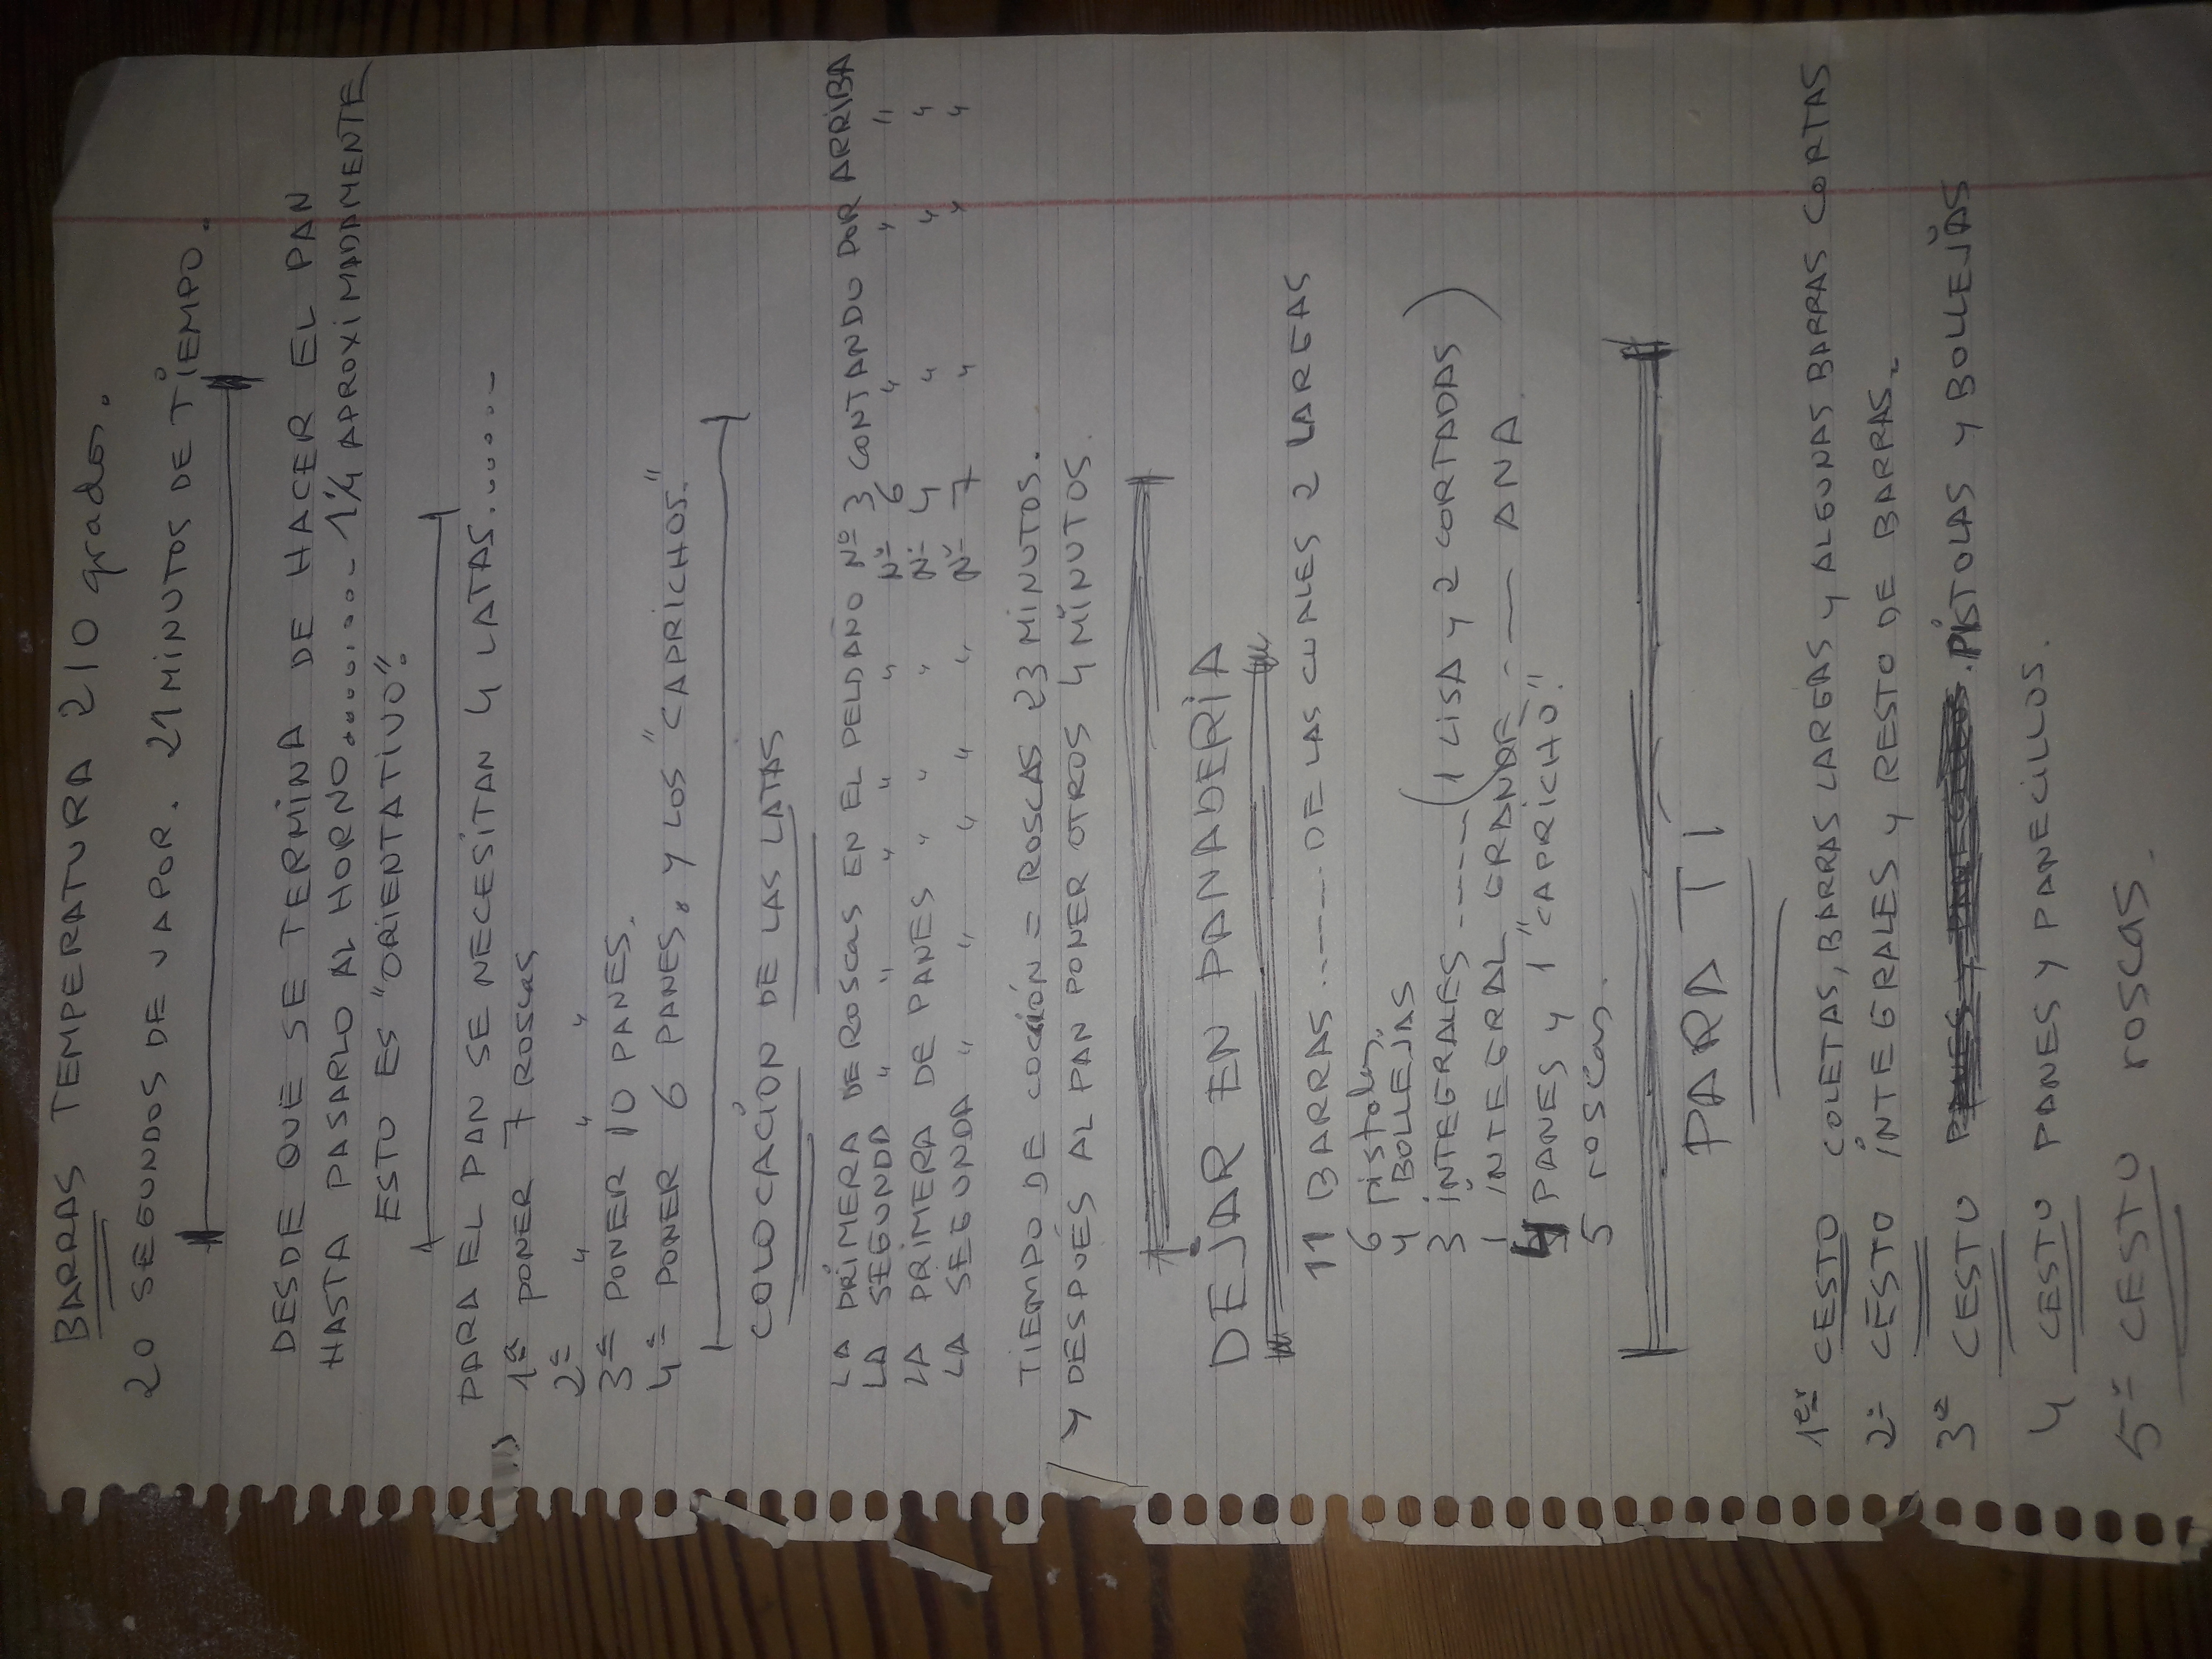 BARRAS TEMPERATURA 210 grados.
20 SEGUNDOS DE VAPOR. 21 MINUTOS DE TIEMPO.
DESDE QUE SE TERMINA DE HACER EL PAN
HASTA PASARLO AL HORNO......... 1¼ APROXIMADAMENTE
ESTO ES "ORIENTATIVO".
PARA EL PAN SE NECESITAN 4 LATAS.......-
1ª PONER 7 ROSCAS
2ª " " "
3ª PONER 10 PANES.
4ª PONER 6 PANES. Y LOS "CAPRICHOS."
COLOCACIÓN DE LAS LATAS
LA PRIMERA DE ROSCAS EN EL PELDAÑO Nº 3 CONTANDO POR ARRIBA
LA SEGUNDA " " " " " Nº 6 " " "
LA PRIMERA DE PANES " " " Nº 4 " " "
LA SEGUNDA " " " " " Nº 7 " " "
TIEMPO DE COCCIÓN = ROSCAS 23 MINUTOS.
Y DESPUÉS AL PAN PONER OTROS 4 MINUTOS.
DEJAR EN PANADERIA
11 BARRAS ...---.. DE LAS CUALES 2 LARGAS
6 Pistolas
4 BOLLEJAS
3 INTEGRALES ----- (1 LISA Y 2 CORTADAS)
1 INTEGRAL GRANDE .- — ANA.
4 PANES Y 1 "CAPRICHO".
5 roscas.
PARA TI
1er CESTO COLETAS, BARRAS LARGAS Y ALGUNAS BARRAS CORTAS
2º CESTO INTEGRALES Y RESTO DE BARRAS.
3º CESTO PISTOLAS Y BOLLEJAS
4 CESTO PANES Y PANECILLOS.
5º CESTO roscas.